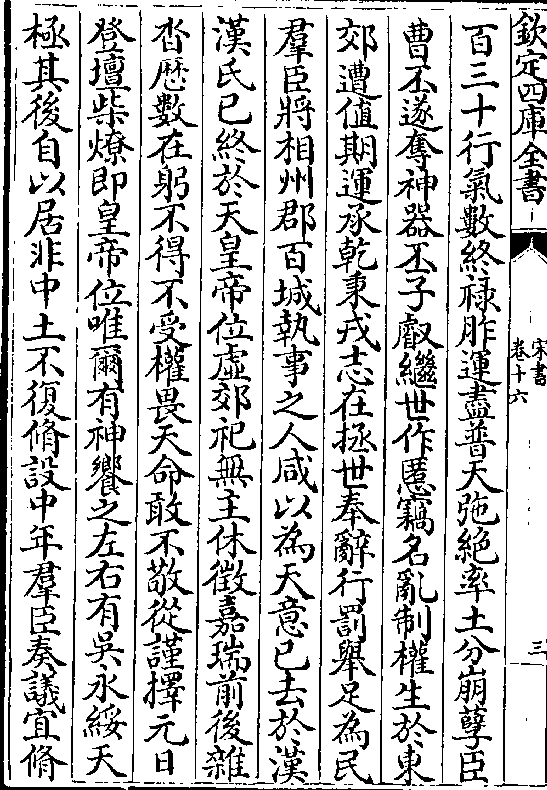 欽定四庫全書
宋書
卷十六
三
百三十行氣數終祿胙運盡普天弛絶率土分崩孽臣
曹丕遂奪神器丕子叡繼世作慝竊名亂制權生於東
郊遭值期運承乾秉戎志在拯世奉辭行罰舉足為民
羣臣將相州郡百城執事之人咸以為天意已去於漢
漢氏已終於天皇帝位虛郊祀無主休徵嘉瑞前後雜
沓歴數在躬不得不受權畏天命敢不敬從謹擇元日
登壇柴燎即皇帝位唯爾有神饗之左右有吳永綏天
極其後自以居非中土不復脩設中年羣臣奏議宜脩